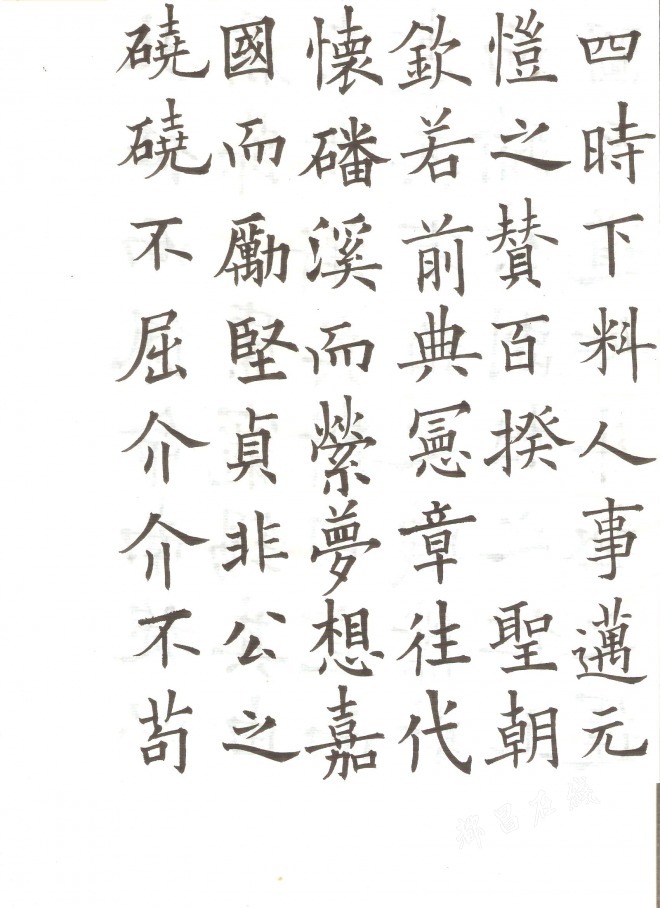 四時下料人事邁元
愷之賛百揆 聖朝
欽若前典憲章往代
懷磻溪而縈夢想嘉
國而勵堅貞非公之
磽磽不屈介介不苟